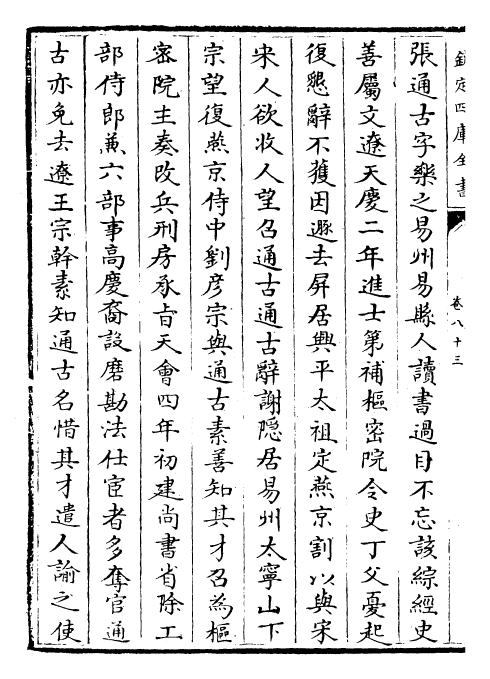 欽定四庫全書
卷八十三
張通古字樂之易州易縣人讀書過目不忘該綜經史
善屬文遼天慶二年進士第補樞密院令史丁父憂起
復懇辭不獲因遯去屏居興平太祖定燕京割以與宋
宋人欲收人望召通古通古辭謝隐居易州太寧山下
宗望復燕京侍中劉彦宗與通古素善知其才召為樞
宻院主奏改兵刑房承㫖天會四年初建尚書省除工
部侍郎兼六部事高慶裔設磨勘法仕宦者多奪官通
古亦免去遼王宗幹素知通古名惜其才遣人諭之使